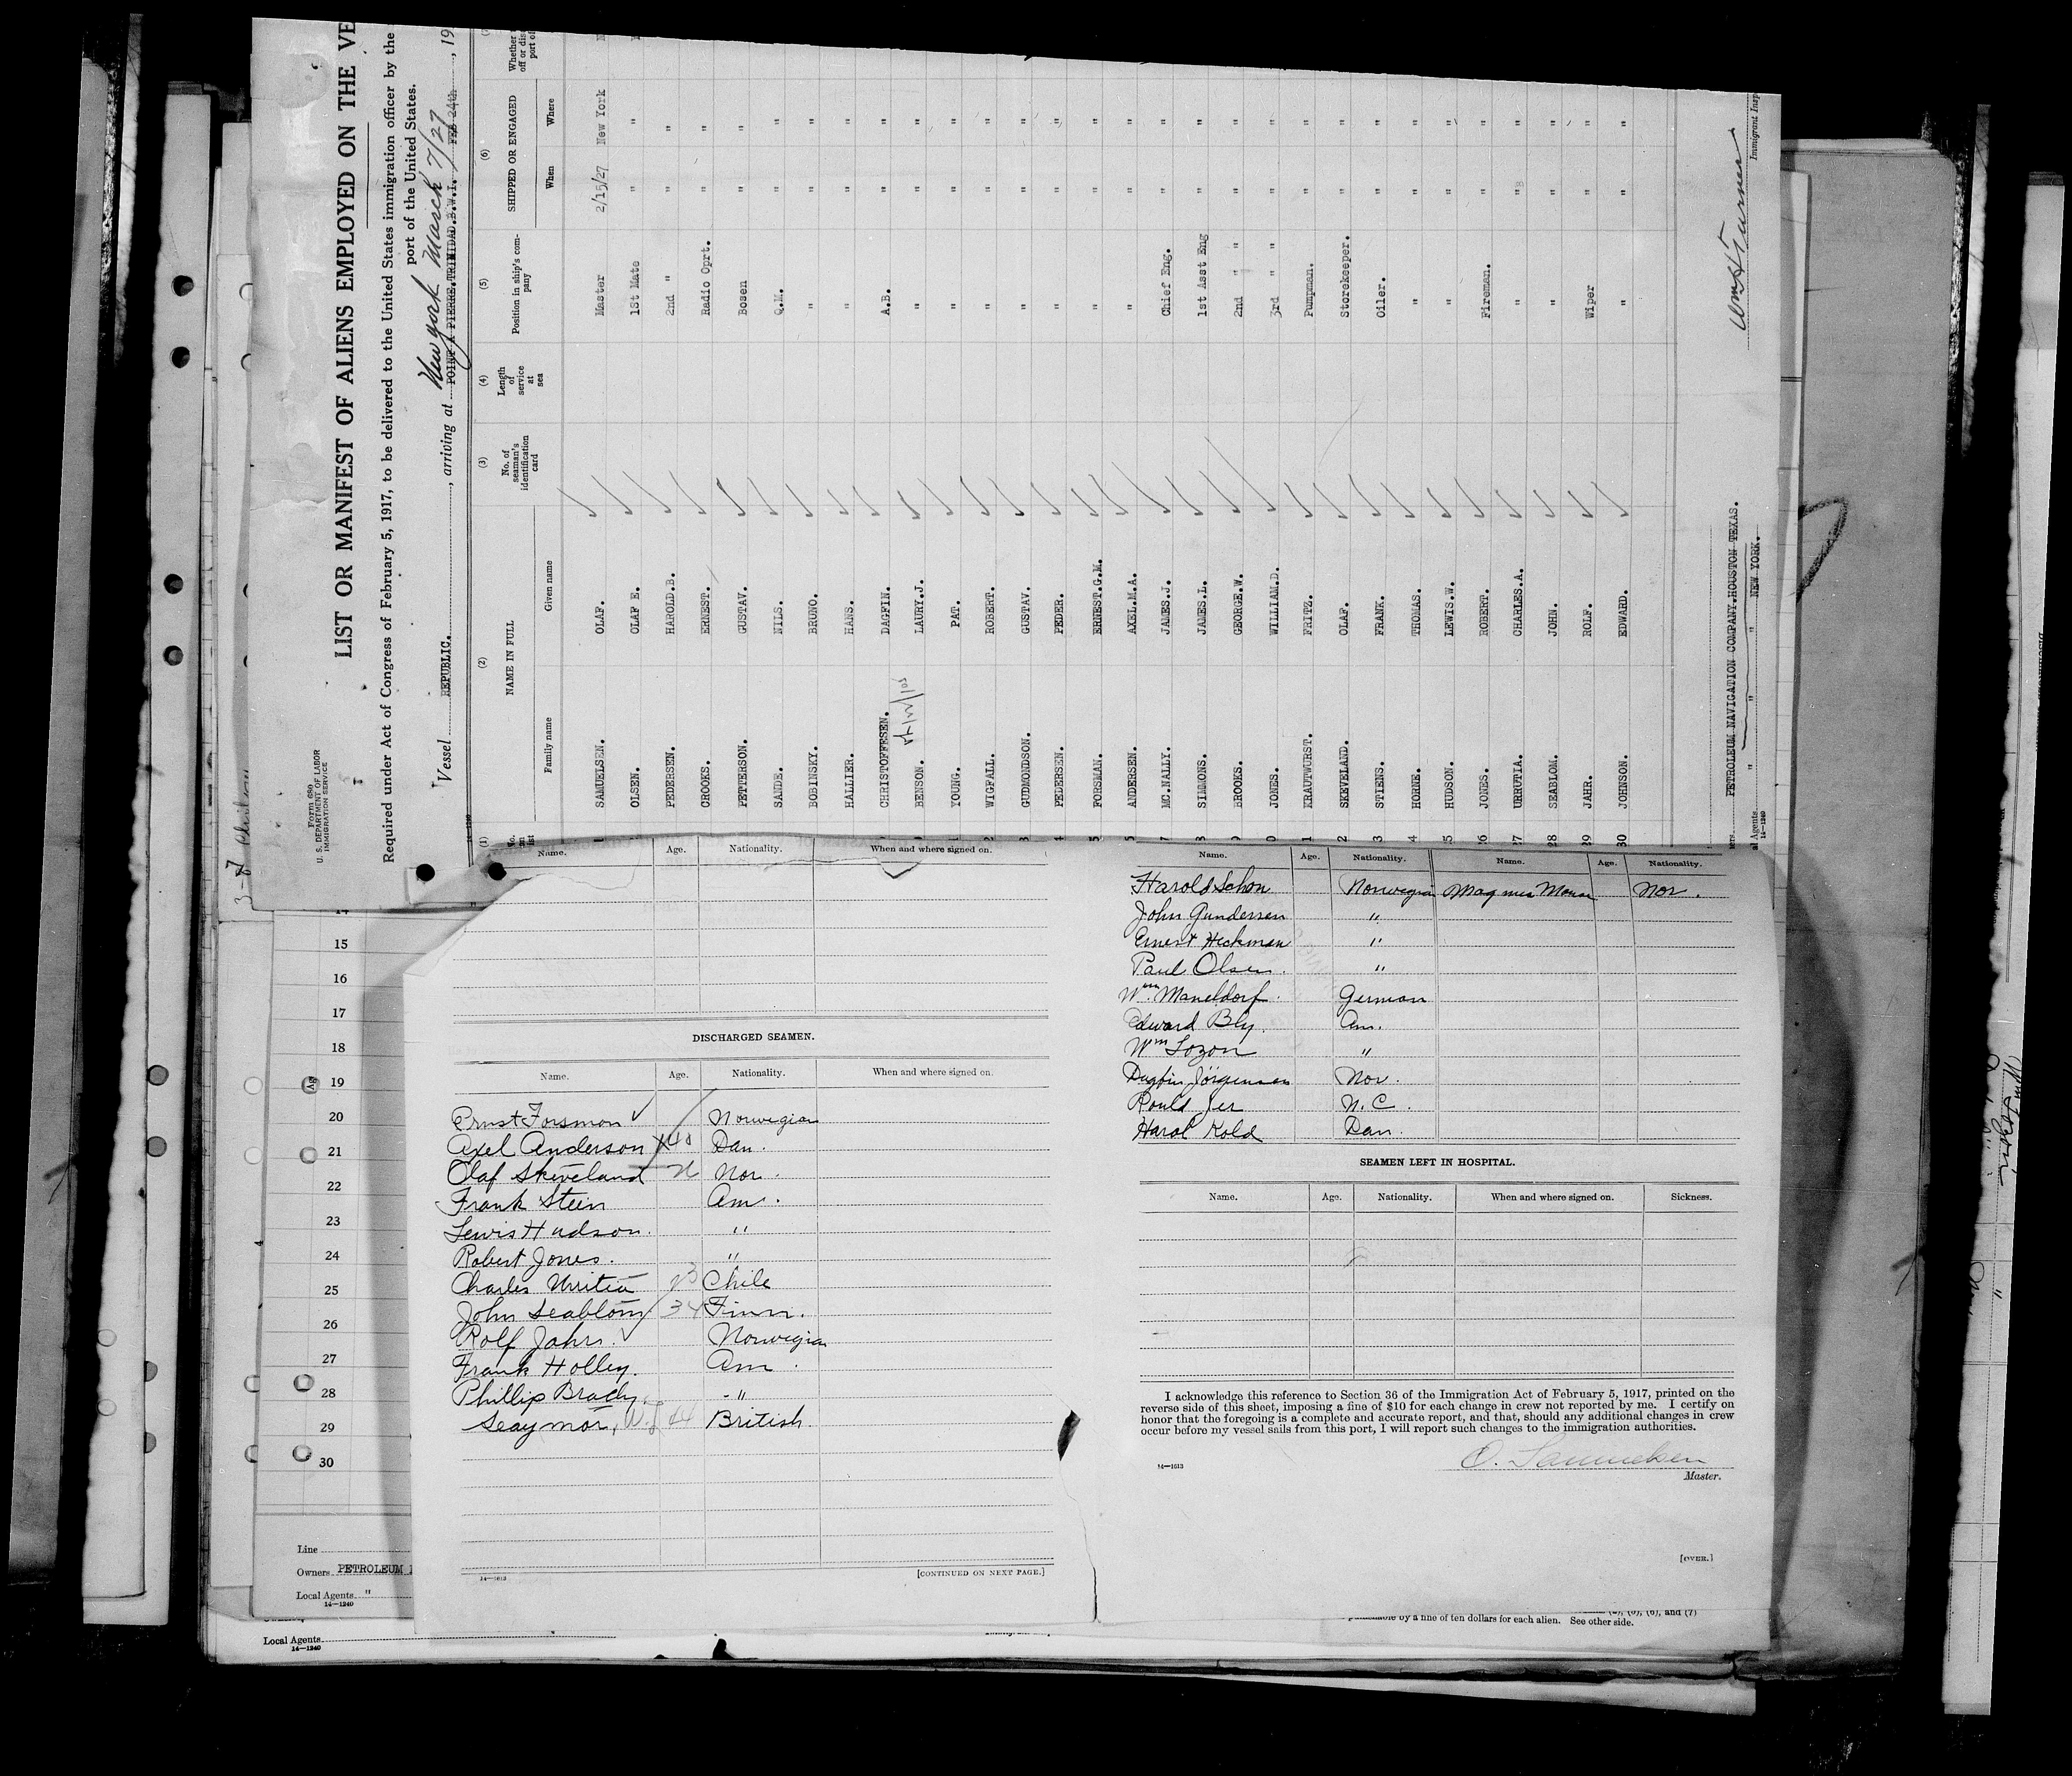 Form 680
U. S. DEPARTMENT OF LABOR
IMMIGRATION SERVICE
LIST OR MANIFEST OF ALIENS EMPLOYED ON THE VE
Required under Act of Congress of February 5, 1917, to be delivered to the United States immigration officer by the
port of the United States.
Vessel REPUBLIC. , arriving at New York March 7/27 , 19
POINT A PIERRE,TRINIDAD.B.W.I. FEB 24th
(1) (2) (3) (4) (5) (6)
NAME IN FULL No. of seaman's identification card Length of service at sea Position in ship's company SHIPPED OR ENGAGED
Family name Given name When Where
SAMUELSEN. OLAF. Master 2/15/27 New York
OLSEN. OLAF E. 1St Mate " "
PEDERSEN. HAROLD.B. 2nd " " "
CROOKS. ERNEST. Radio Oprt. " "
PETTERSON. GUSTAV. Bosen " "
SANDE. NILS. Q.M. " "
BOBINSKY. BRUNO. " " "
HALLIER. HANS. " " "
CHRISTOFFESEN. DAGFIN. A.B. " "
BENSON. LAURY.J. " " "
YOUNG. PAT. " " "
WIGFALL. ROBERT. " " "
GUDMONDSON. GUSTAV. " " "
PEDERSEN. PEDER. " " "
FORSMAN. ERNEST.G.M. " " "
ANDERSEN. AXEL.M.A. " " "
MC.NALLY. JAMES.J. Chief Eng. " "
SIMMONS. JAMES.L. 1st Asst Eng " "
BROOKS. GEORGE.W. 2nd " " " "
JONES. WILLIAM.D. 3rd " " " "
KRAUTWURST. FRITZ. Pumpman. " "
SKEVELAND. OLAF. Storekeeper. " "
STIENS. FRANK. Oiler. " "
HORNE. THOMAS. " " "
HUDSON. LEWIS.W. " " "
26 JONES. ROBERT. Fireman. " "
27 URRUTIA. CHARLES.A. " " "
28 SEABLOM. JOHN. " " "
29 JAHR. ROLF. Wiper " "
30 JOHNSON. EDWARD. " " "
PETROLEUM NAVIGATION COMPANY.HOUSTON TEXAS.
al Agents " " " NEW YORK.
14—1240
Immigrant Insp
Name. Age. Nationality. When and where signed on.
DISCHARGED SEAMEN.
Name. Age. Nationality. When and where signed on.
Ernst Forsmon Norwegian
Axel Anderson 40 Dan.
Olaf Skeveland Nor.
Frank Stein Am.
Lewis Hudson. "
Robert Jones. "
Charles Urritia Chile
John Seablom 34 Finn.
Rolf Jahr. Norwegian
Frank Holley. Am.
Phillip Brady. "
Seaymor, 44 British
14—1613
[CONTINUED ON NEXT PAGE.]
Name. Age. Nationality. Name. Age. Nationality.
Harold Schon Norwegian Magnus Nor.
John Gundersen "
Ernest Heckman "
Paul Olsen. "
Wm. Maneldorf. German
Edward Bly. Am.
Wm Lozon "
Dagfin Jörgensen Nor.
N.C.
Harol Kold Dan.
SEAMEN LEFT IN HOSPITAL.
Name. Age. Nationality. When and where signed on. Sickness.
I acknowledge this reference to Section 36 of the Immigration Act of February 5, 1917, printed on the
reverse side of this sheet, imposing a fine of $10 for each change in crew not reported by me. I certify on
honor that the foregoing is a complete and accurate report, and that, should any additional changes in crew
occur before my vessel sails from this port, I will report such changes to the immigration authorities.
O. Samuelsen
Master.
14—1613
[OVER.]
15
16
17
18
19
20
21
22
23
24
25
26
27
28
29
30
Line
Owners PETROLEUM
Local Agents "
14—1240
Local Agents
14—1240
by a fine of ten dollars for each alien. See other side.
(6), and (7)